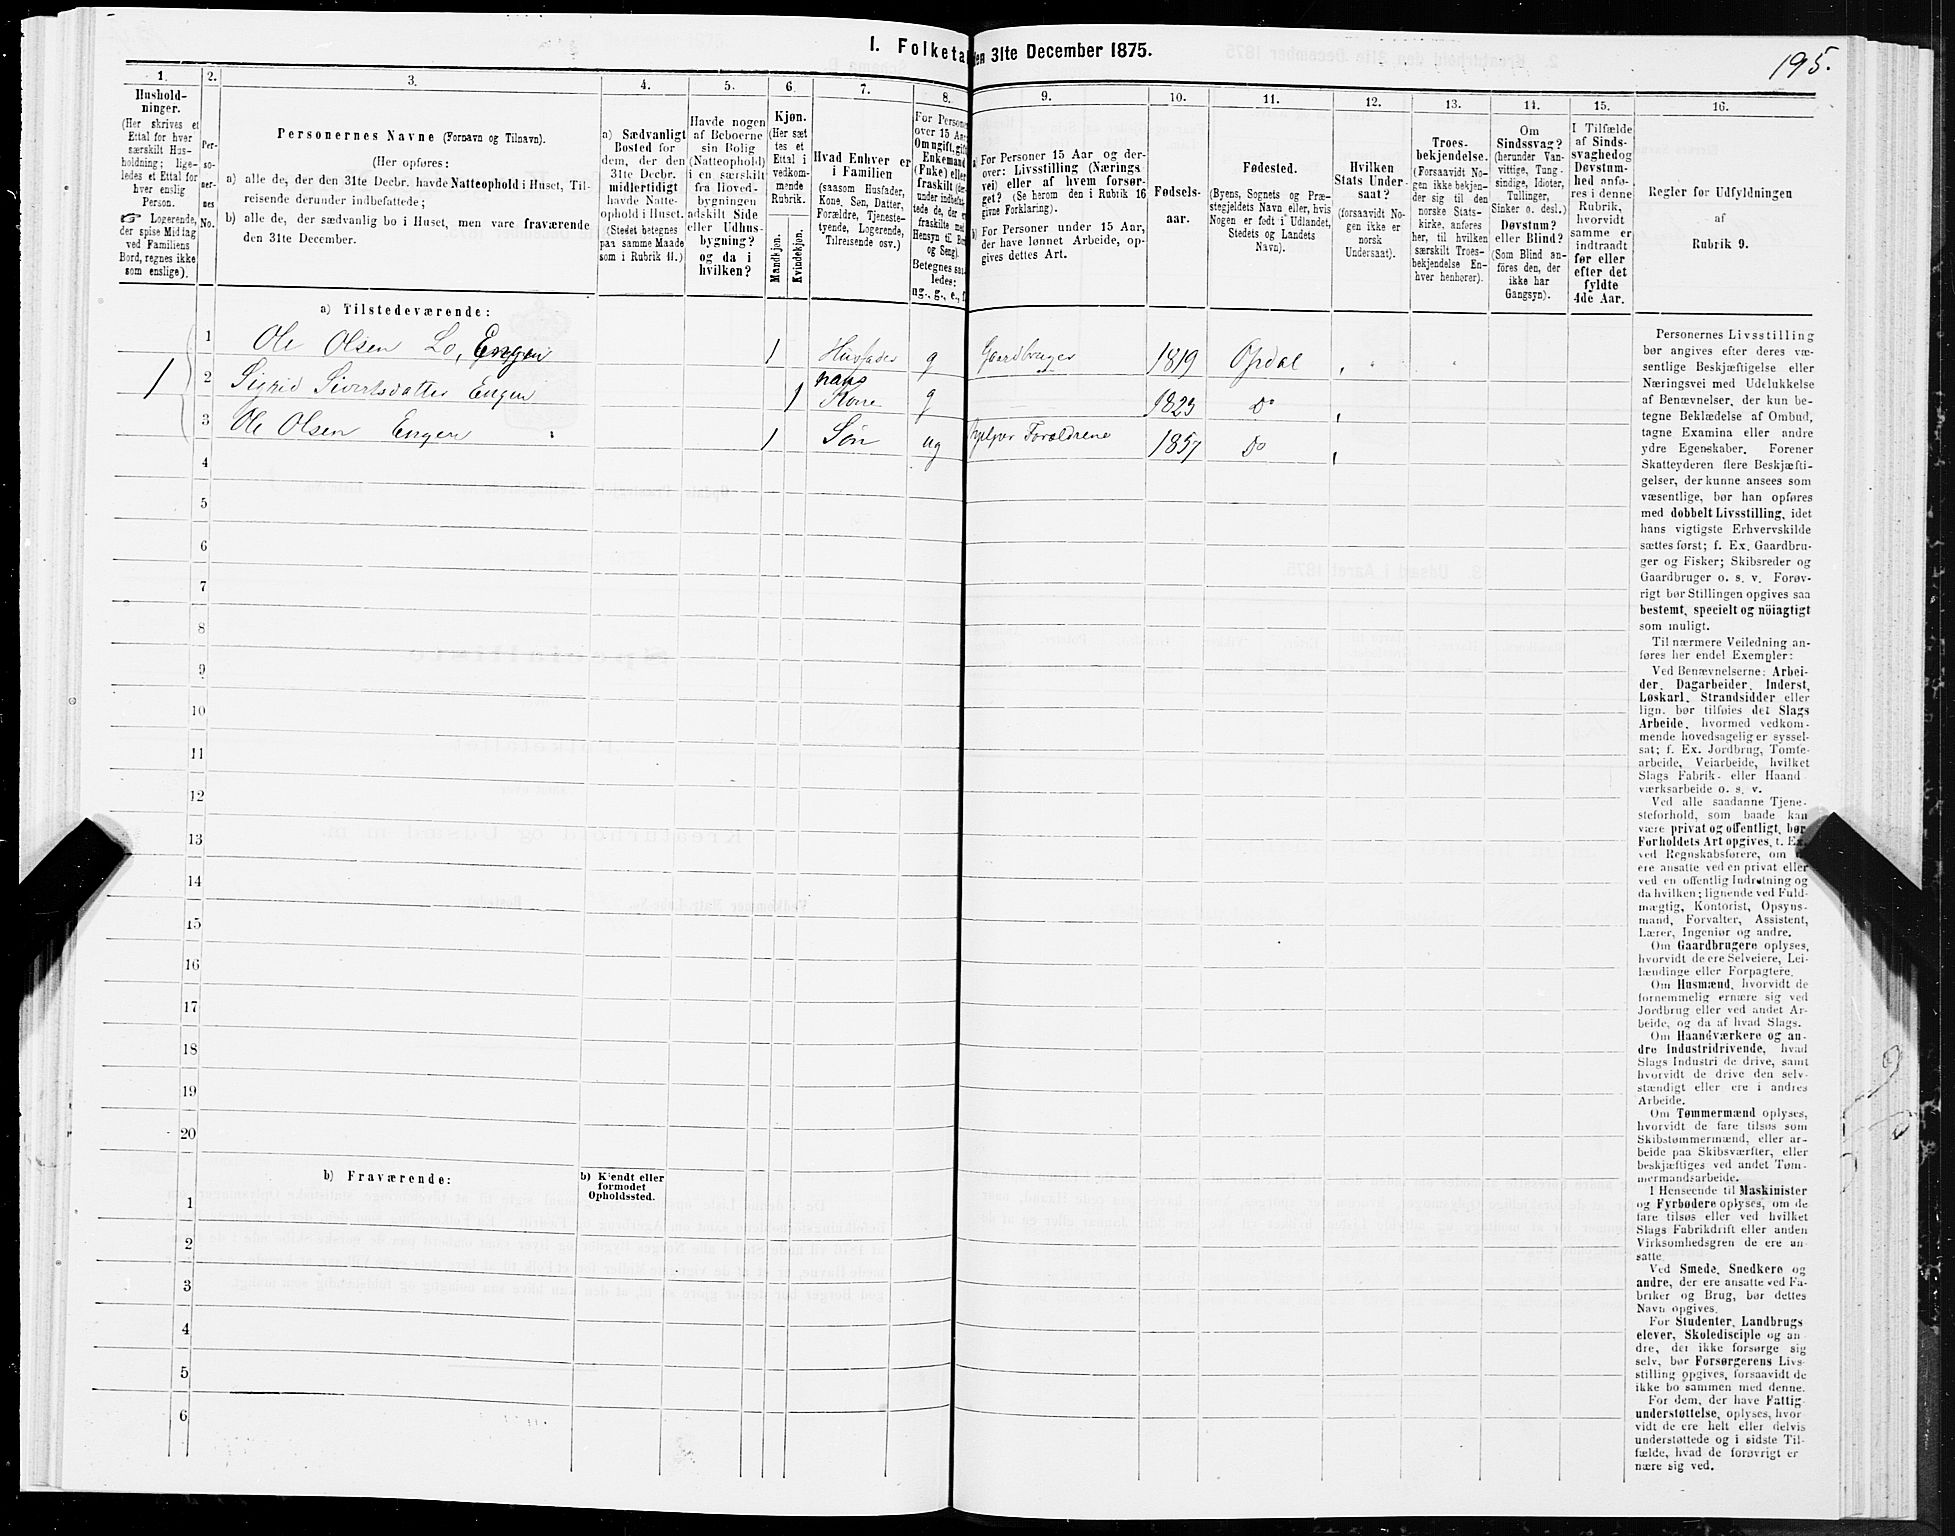 I. Folketal
den 31te December 1875.
195.
1.
2.
3.
4.
5.
6.
7.
8.
9.
10.
11.
12.
13.
14.
15.
16.
Hushold-
ninger.
(Her skrives et
Ettal for hver
særskilt Hus-
holdning; lige-
ledes et Ettal for
hver enslig
Person.
☞ Logerende,
der spise Middag
ved Familiens
Bord, regnes ikke
som enslige).
Per-
so-
ner-
nes
No.
Personernes Navne (Fornavn og Tilnavn).
(Her opføres:
a) alle de, der den 31te Decbr. havde Natteophold i Huset, Til-
reisende derunder indbefattede;
b) alle de, der sædvanlig bo i Huset, men vare fraværende
den 31te December.
a) Sædvanligt
Bosted for
dem, der den
31te Decbr.
midlertidigt
havde Natte-
ophold i Huset.
(Stedet betegnes
paa samme Maade
som i Rubrik 11.)
Havde nogen
af Beboerne
sin Bolig
(Natteophold)
i en særskilt
fra Hoved-
bygningen
adskilt Side
eller Udhus-
bygning?
og da i
hvilken?
Kjøn.
(Her sæt
tes et
Ettal i
vedkom-
mende
Rubrik.
Mandkjøn.
Kvindekjøn.
Hvad Enhver er
i Familien
(saasom Husfader,
Kone, Søn, Datter,
Forældre, Tjeneste-
tyende, Logerende,
Tilreisende osv.)
For Personer
over 15 Aar:
Om ugift, gift,
Enkemand
(Enke) eller
fraskilt (der-
under indbefat-
tede de, der er
fraskilte med
Hensyn til Bord
og Seng).
Betegnes saa-
ledes:
ug., g., e., f.
a) For Personer 15 Aar og der-
over: Livsstilling (Nærings-
vei) eller af hvem forsør-
get? (Se herom den i Rubrik 16
givne Forklaring).
b) For Personer under 15 Aar,
der have lønnet Arbeide, op-
gives dettes Art.
Fødsels-
aar.
Fødested.
(Byens, Sognets og Præ-
stegjeldets Navn eller, hvis
Nogen er født i Udlandet,
Stedets og Landets
Navn).
Hvilken
Stats Under-
saat?
(forsaavidt No-
gen ikke er
norsk
Undersaat).
Troes-
bekjendelse.
(Forsaavidt No-
gen ikke bekjen-
der sig til den
norske Stats-
kirke, anføres
her, til hvilken
særskilt Troes-
bekjendelse En-
hver henhører).
Om
Sindssvag?
(herunder Van-
vittige, Tung-
sindige, Idioter,
Tullinger,
Sinker o. desl.)
Døvstum?
eller Blind?
(Som Blind an-
føres den, der
ikke har
Gangsyn).
I Tilfælde
af Sinds-
svaghed og
Døvstum-
hed anfø-
res i denne
Rubrik,
hvorvidt
samme er
indtraadt
før eller
efter det
fyldte
4de Aar.
Regler for Udfyldningen
af
Rubrik 9.
a) Tilstedeværende:
1 Ole Olsen Lo, Engen 1 Husfader g Gaardbruger 1819 Opdal
1 2 Sigrid Sivertsdatter Engen 1 hans Kone g 1823 Do
3 Ole Olsen Engen 1 Søn ug hjelper Forældrene 1857 Do
4
5
6
7
8
9
10
11
12
13
14
15
16
17
18
19
20
b) Fraværende:
b) Kjendt eller
formodet
Opholdssted.
1
2
3
4
5
6
Personernes Livsstilling
bør angives efter deres væ-
sentlige Beskjæftigelse eller
Næringsvei med Udelukkelse
af Benævnelser, der kun be-
tegne Beklædelse af Ombud,
tagne Examina eller andre
ydre Egenskaber. Forener
Skatteyderen flere Beskjæfti-
gelser, der kunne ansees som
væsentlige, bør han opføres
med dobbelt Livsstilling, idet
hans vigtigste Erhvervskilde
sættes først; f. Ex. Gaardbru-
ger og Fisker; Skibsreder og
Gaardbruger o. s. v. Forøv-
rigt bør Stillingen opgives saa
bestemt, specielt og nöiagtigt
som muligt.
Til nærmere Veiledning an-
føres her endel Exempler:
Ved Benævnelserne: Arbei-
der, Dagarbeider, Inderst,
Løskarl, Strandsidder eller
lign. bør tilføies det Slags
Arbeide, hvormed vedkom-
mende hovedsagelig er syssel-
sat; f. Ex. Jordbrug, Tomte-
arbeide, Veiarbeide, hvilket
Slags Fabrik- eller Haand
værksarbeide o. s. v.
Ved alle saadanne Tjene-
steforhold, som baade kan
være privat og offentligt, bør
Forholdets Art opgives, t. Ex.
ved Regnskabsførere, om de
ere ansatte ved en privat eller
ved en offentlig Indretning og
da hvilken; lignende ved Fuld-
mægtig, Kontorist, Opsyns-
mand, Forvalter, Assistent,
Lærer, Ingeniør og andre.
Om Gaardbrugere oplyses,
hvorvidt de ere Selveiere, Lei-
lændinge eller Forpagtere.
Om Husmænd, hvorvidt de
fornemmelig ernære sig ved
Jordbrug eller ved andet Ar-
beide, og da af hvad Slags.
Om Haandværkere og an-
dre Industridrivende, hvad
Slags Industri de drive, samt
hvorvidt de drive den selv-
stændigt eller ere i andres
Arbeide.
Om Tømmermænd oplyses,
hvorvidt de fare tilsøs som
Skibstømmermænd, eller ar-
beide paa Skibsværfter, eller
beskjæftiges ved andet Tøm-
mermandsarbeide.
I Henseende til Maskinister
og Fyrbødere oplyses, om de
fare tilsøs eller ved hvilket
Slags Fabrikdrift eller anden
Virksomhedsgren de ere an
satte
Ved Smede, Snedkere og
andre, der ere ansatte ved Fa-
briker og Brug, bør dettes
Navn opgives.
For Studenter, Landbrugs
elever, Skoledisciple og an
dre, der ikke forsørge sig
selv, bør Forsørgerens Livs-
stilling opgives, forsaavidt de
ikke bo sammen med denne.
For dem, der have Fattig
understøttelse, oplyses, hvor
vidt de ere helt eller delvis
understøttede og i sidste Til-
fælde, hvad de forøvrigt er
nære sig ved.